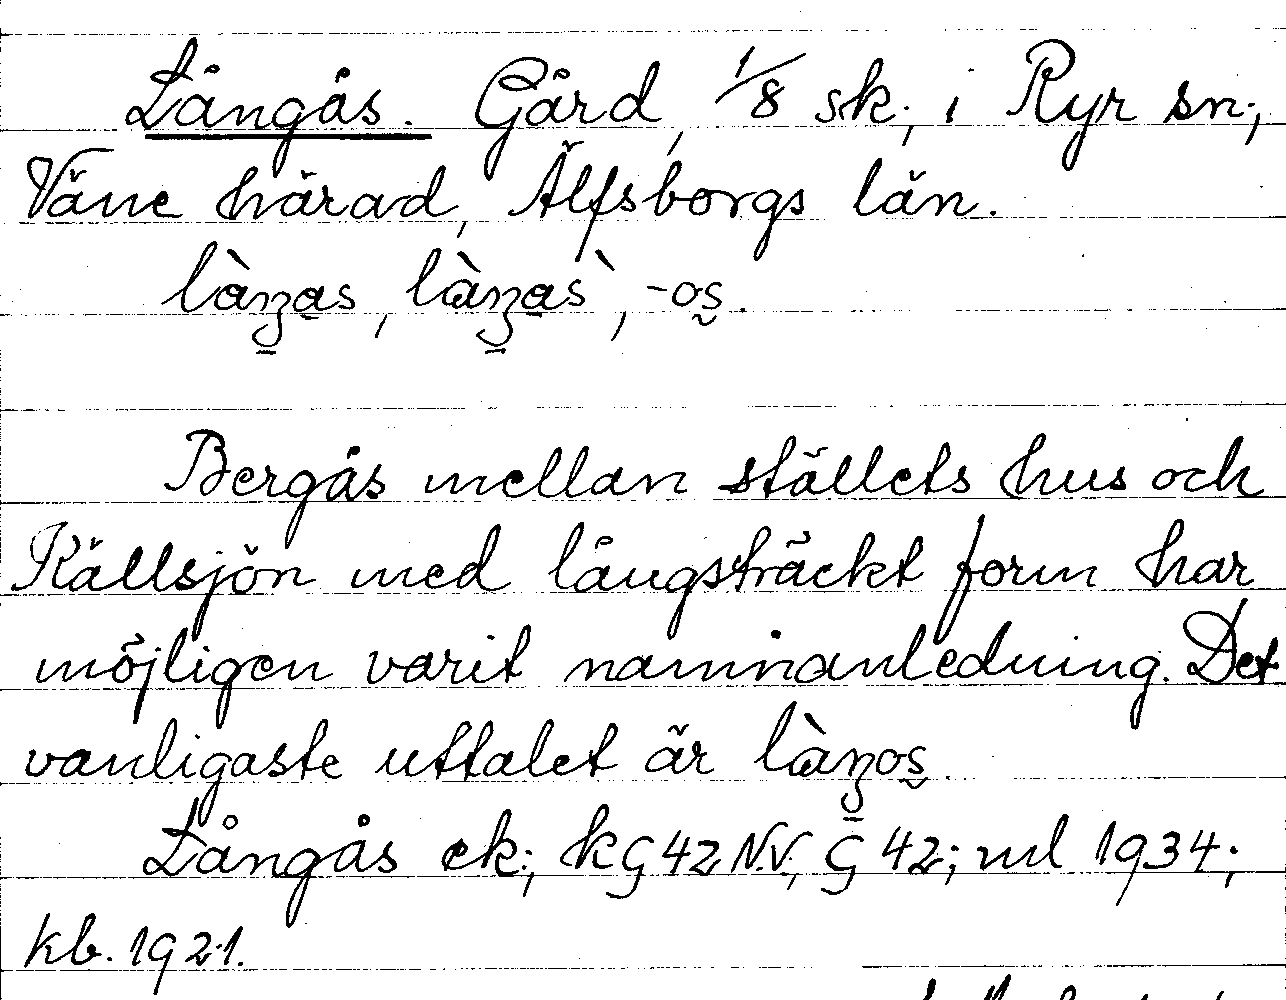 Långås. Gård, 1/8 sk., i Ryr sn;
Väne härad, Älfsborgs län.
làŋ̱as, làŋ̱as`, -os̰.
Bergås mellan ställets hus och
Källsjön med långsträckt form har
möjligen varit namnanledning. Det
vanligaste uttalet är làŋ̱os̰.
Långås ek.; kG 42 N.V., G 42; ml 1934;
kb. 1921.